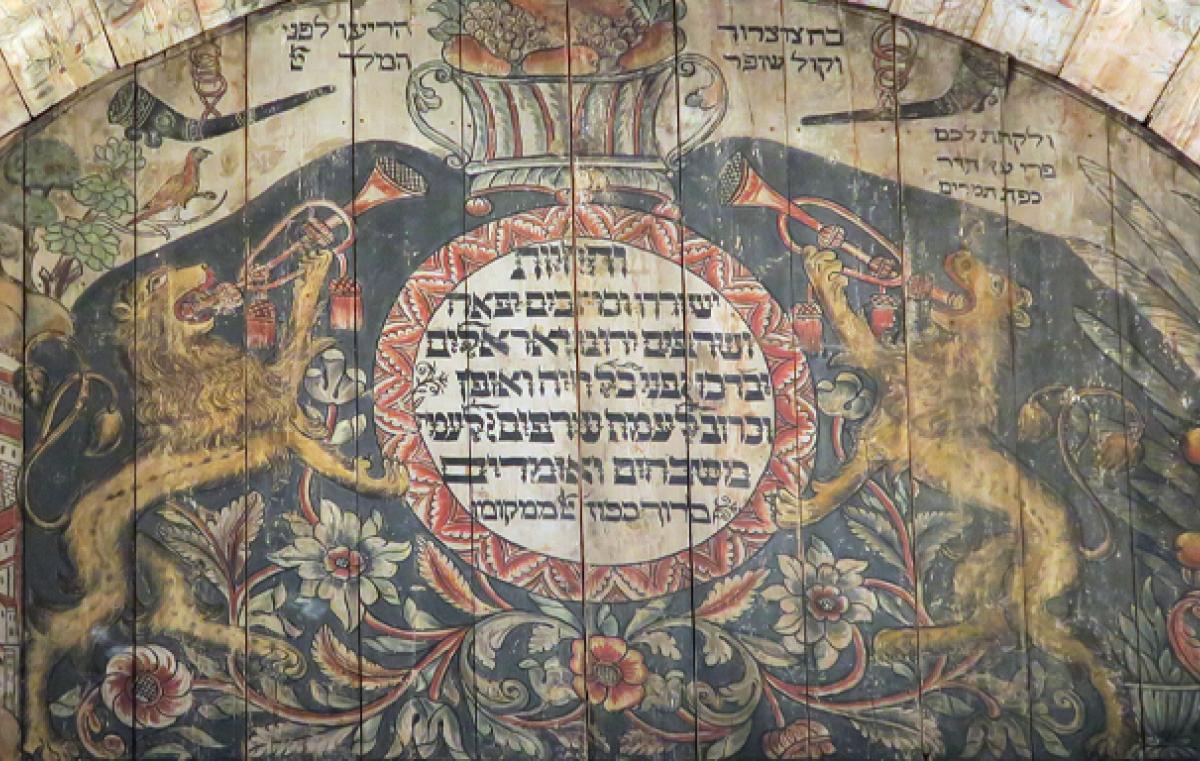 בחצוצרות
וקול שופר
הריעו לפני
המלך ה'
ולקחת לכם
פרי עץ הדר
כפת תמרים
והחיות
ישוררו וכרובים יפארו
ושרפים ירונו ואראלים
יברכו פני כל חיה ואופן
וכרוב לעמת שרפים לעמתם
משבחים ואומרים
ברוך כבוד ה' ממקומו